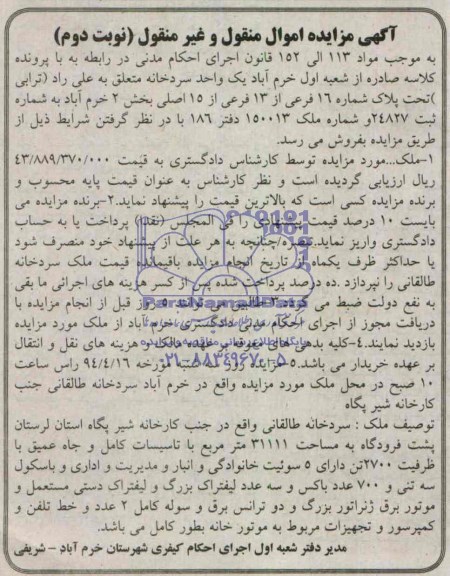 آگهی مزایده اموال منقول و غیر منقول (نوبت دوم)
به موجب مواد ۱۱۳ الی ۱۵۲ قانون اجرای احکام مدنی در رابطه به با پرونده
کلاسه صادره از شعبه اول خرم آباد یک واحد سردخانه متعلق به علی راد (ترابی
)تحت پلاک شماره ۱۶ فرعی از ۱۳ فرعی از ۱۵ اصلی بخش ۲ خرم آباد به شماره
ثبت ۲۴۸۲۷و شماره ملک ۱۵۰۰۱۳ دفتر ۱۸۶ با در نظر گرفتن شرایط ذیل از
طریق مزایده بفروش می رسد.
۱-ملک...مورد مزایده توسط کارشناس دادگستری به قیمت ۴۳/۸۸۹/۳۷۰/۰۰۰
ریال ارزیابی گردیده است و نظر کارشناس به عنوان قیمت پایه محسوب و
برنده مزایده کسی است که بالاترین قیمت را پیشنهاد نماید.۲-برنده مزایده می
بایست ۱۰ درصد قیمت پیشنهادی را فی المجلس (نقدا) پرداخت یا به حساب
دادگستری واریز نماید.تبصره/چنانچه به هر علت از پیشنهاد خود منصرف شود
یا حداکثر ظرف یکماه از تاریخ انجام مزایده باقیمانده قیمت ملک سردخانه
طالقانی را نپردازد .ده درصد پرداخت شده پس از کسر هزینه های اجرائی ما بقی
به نفع دولت ضبط می ۳- ۵ روز قبل از انجام مزایده با
دریافت مجوز از اجرای احکام مدنی دادگستری خرم آباد از ملک مورد مزایده
بازدید نمایند.۴-کلیه بدهی های معرفه بر عهده مالک و هزینه های نقل و انتقال
بر عهده خریدار می باشد.۵-مزایده روز شنبه مورخه ۹۴/۴/۱۶ راس ساعت
۱۰ صبح در محل ملک مورد مزایده واقع در خرم آباد سردخانه طالقانی جنب
کارخانه شیر پگاه
توصیف ملک : سردخانه طالقانی واقع در جنب کارخانه شیر پگاه استان لرستان
پشت فرودگاه به مساحت ۳۱۱۱۱ متر مربع با تاسیسات کامل و چاه عمیق با
ظرفیت ۲۷۰۰تن دارای ۵ سوئیت خانوادگی و انبار و مدیریت و اداری و باسکول
سه تنی و ۷۰۰ عدد باکس و سه عدد لیفتراک بزرگ و لیفتراک دستی مستعمل و
موتور برق ژنراتور بزرگ و دو ترانس برق و سوله کامل ۲ عدد و خط تلفن و
کمپرسور و تجهیزات مربوط به موتور خانه بطور کامل می باشد.
مدیر دفتر شعبه اول اجرای احکام کیفری شهرستان خرم آباد - شریفی
ParsNamadData
۰۲۱-۸۸۳۴۹۶۷۰-۵